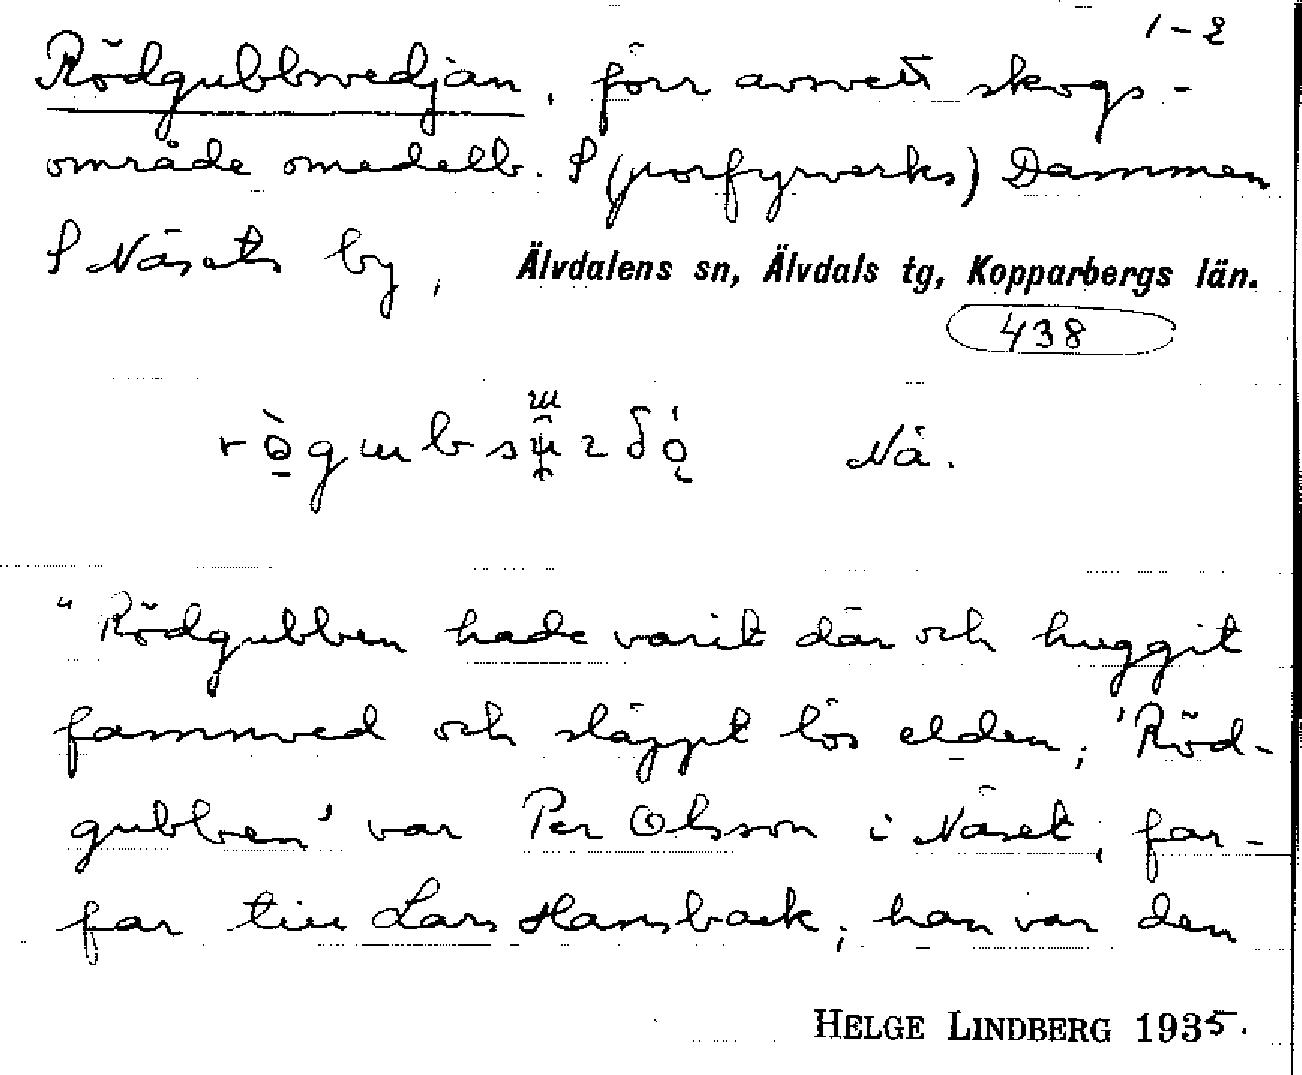 1-2
Rödgubbsvedjan, förr avsvett skogs-
område omedelb. S (porfyrverks) Dammen
S Näsets by, Älvdalens sn, Älvdals tg, Kopparbergs län.
438
Nä.
"Rödgubben hade varit där och huggit
famnved och släppt lös elden; 'Röd-
gubben' var Per Olsson i Näset, far-
far till Lars Hansback; han var den
HELGE LINDBERG 1935.